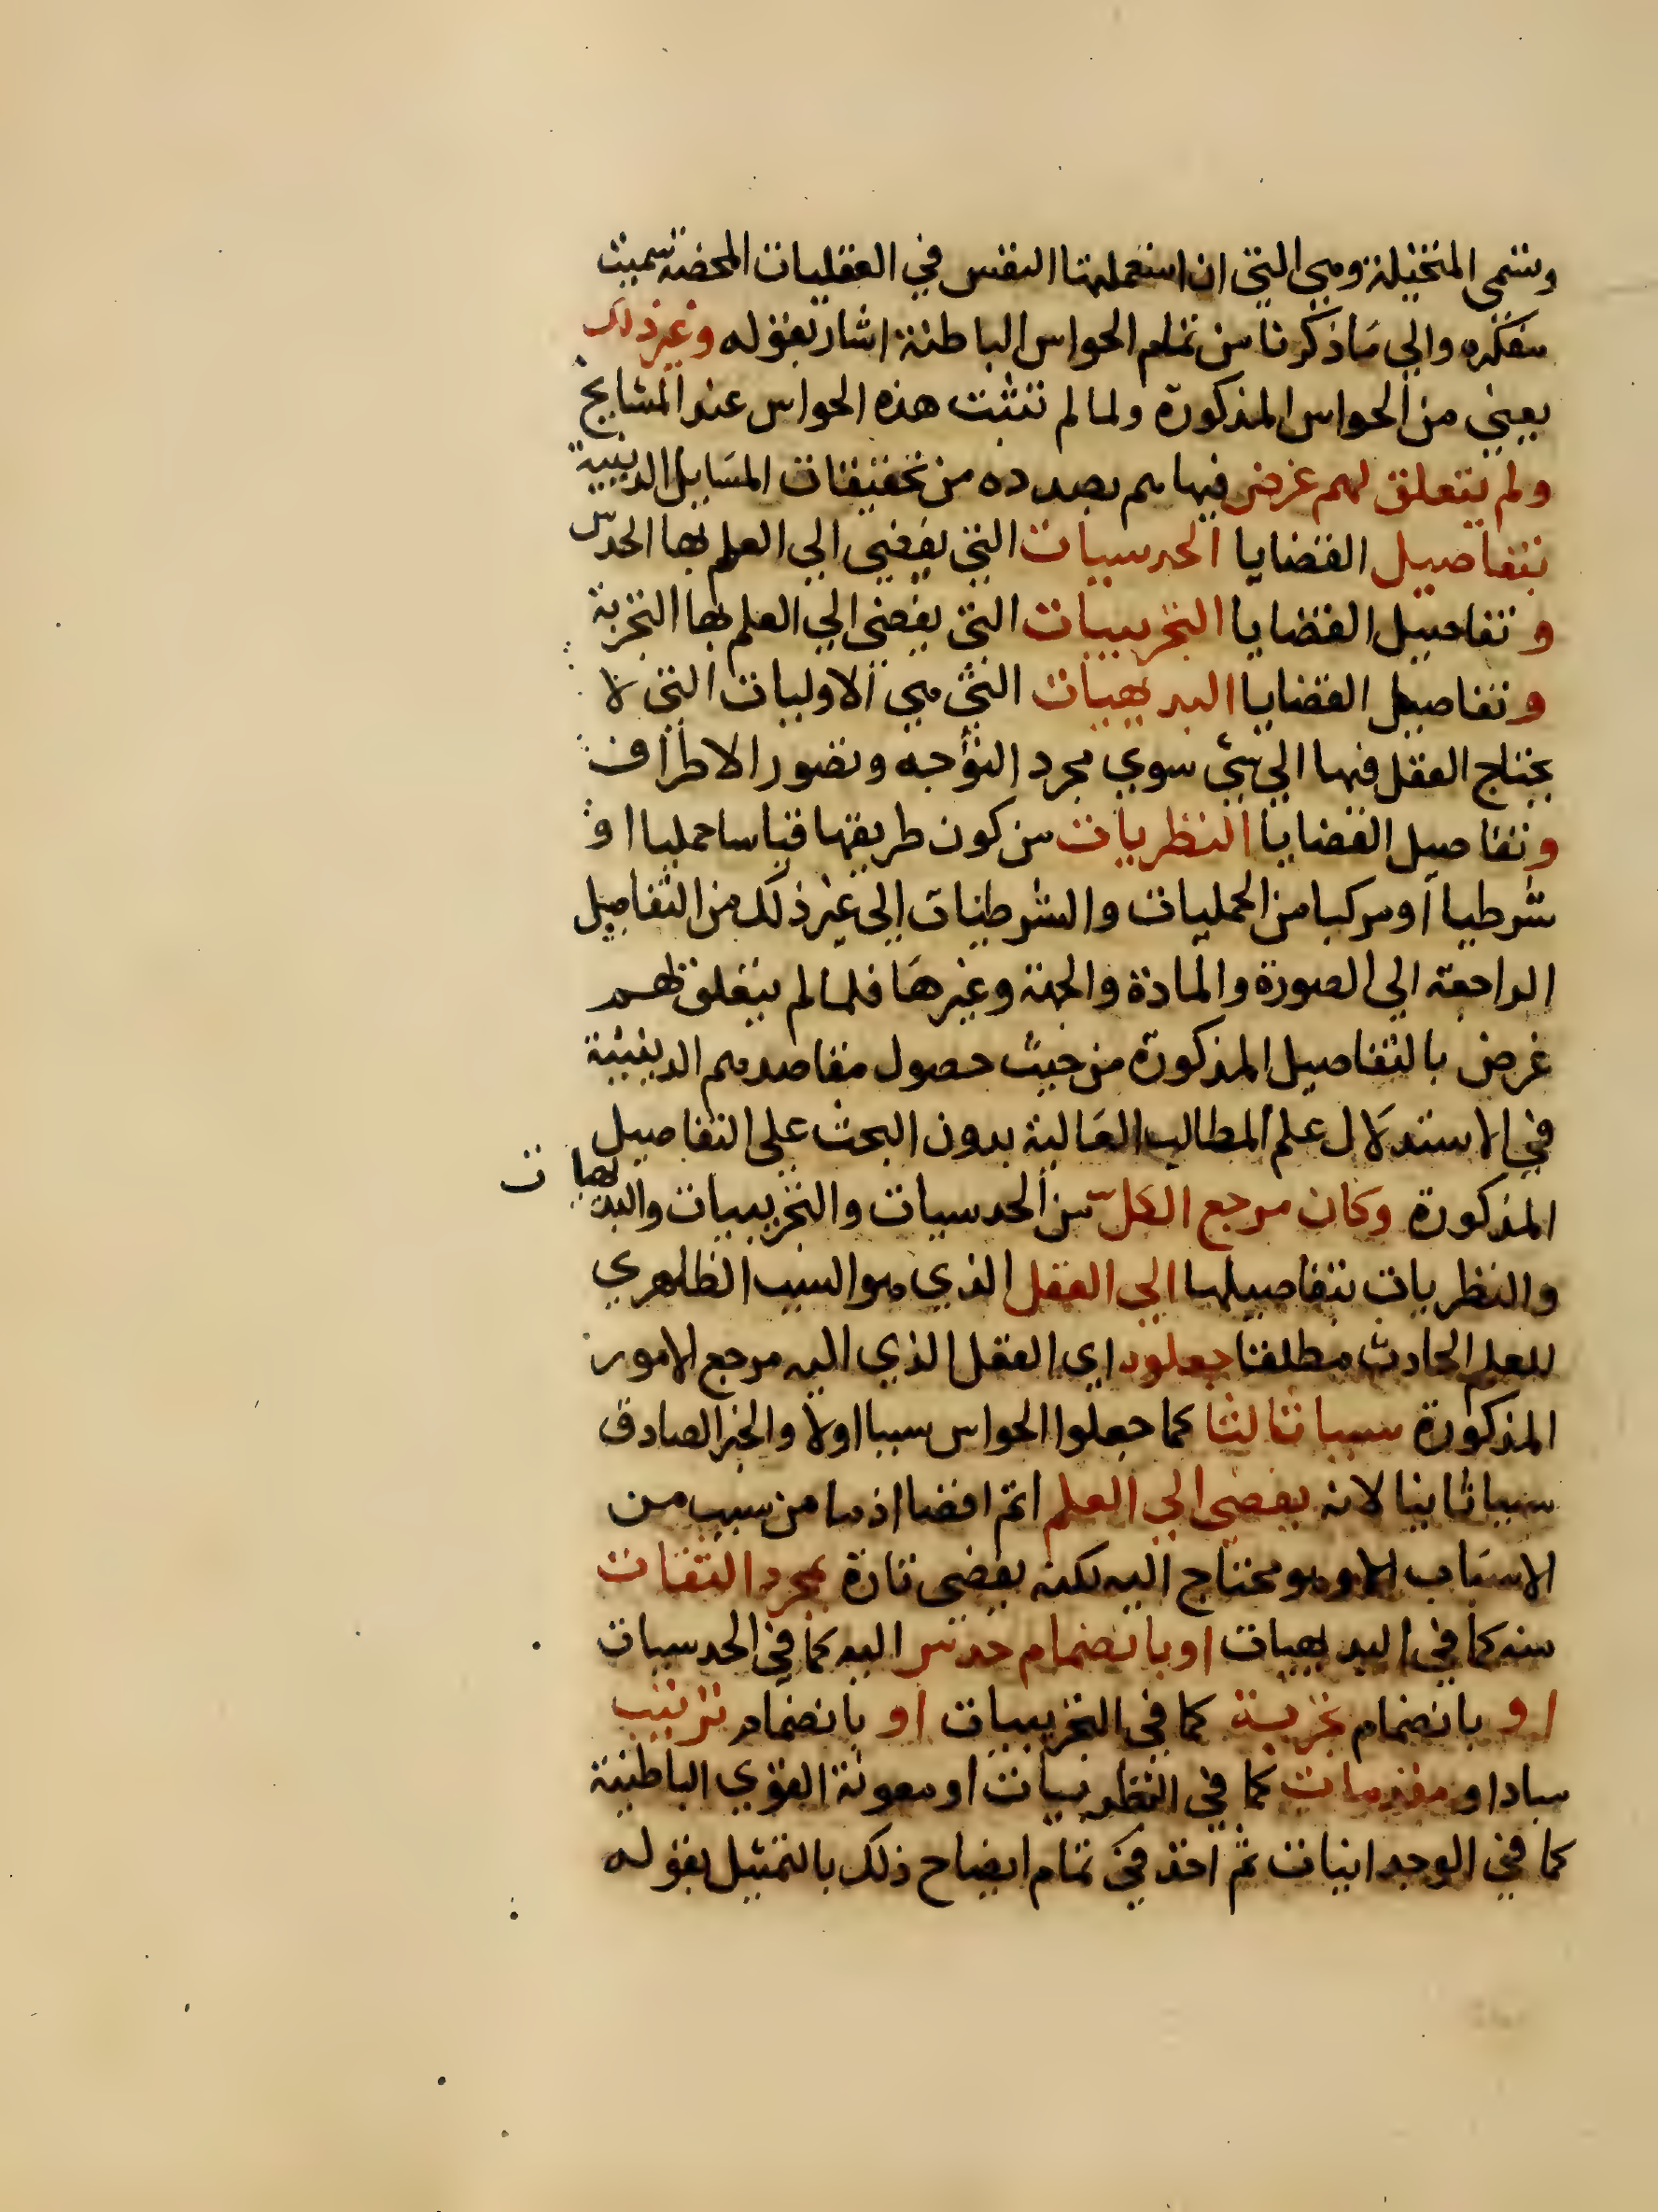 وتسمى المتخيلة وهي التي ان استعملتها النفس في العقليات المحضة سميت
مفكره والي ما ذكرنا من تمام الحواس الباطنة اشار بقوله وغير ذلك
يعني من الحواس المذكورة ولما لم تثبت هذه الحواس عند المشايخ
ولم يتعلق لهم غرض فيما هم بصدده من تحقيقات المسايل الدينية
بتفاصيل القضايا الحدسيات التي يفضي الي العلم بها الحدس
و تفاصيل القضايا التجربيات التي يفضي الي العلم بها التجربة
و تفاصيل القضايا البديهيات التي هي الاوليات التي لا
يحتاج العقل فيها الي شئ سوي مجرد التوجه وتصور الاطراف
و تفاصيل القضايا النظريات من كون طريقها قياسا حمليا او
شرطيا او مركبا من الحمليات والشرطيات الي غير ذلك من التفاصيل
الراجعة الي الصورة والمادة والجهة وغيرها فلما لم يتعلق لهم
غرض بالتفاصيل المذكورة من حيث حصول مقاصدهم الدينية
في الاستدلال علم المطالب العالية بدون البحث علي التفاصيل
المذكورة وكان مرجع الكل من الحدسيات والتجربييات والبديهيات
والنظريات بتفاصيلها الي العقل الذي هو السبب الظاهري
للعلم الحادث مطلقا جعلوه اي العقل الذي اليه مرجع الامور
المذكورة سببا ثالثا كما جعلوا الحواس سببا اولا والخبر الصادق
سببا ثانيا لانه يفضي الي العلم اتم افضا اذ ما من سبب من
الاسباب الا وهو محتاج اليه لكنه يفضي تارة بمجرد التفات
منه كما في البديهيات او بانضمام حدس اليه كما في الحدسيات
او بانضمام تجربة كما في التجربييات او بانضمام ترتيب
مباد او مقدمات كما في النظرييات او معونة القوي الباطنية
كما في الوجدانيات ثم اخذ في تمام ايضاح ذلك بالتمثيل بقوله